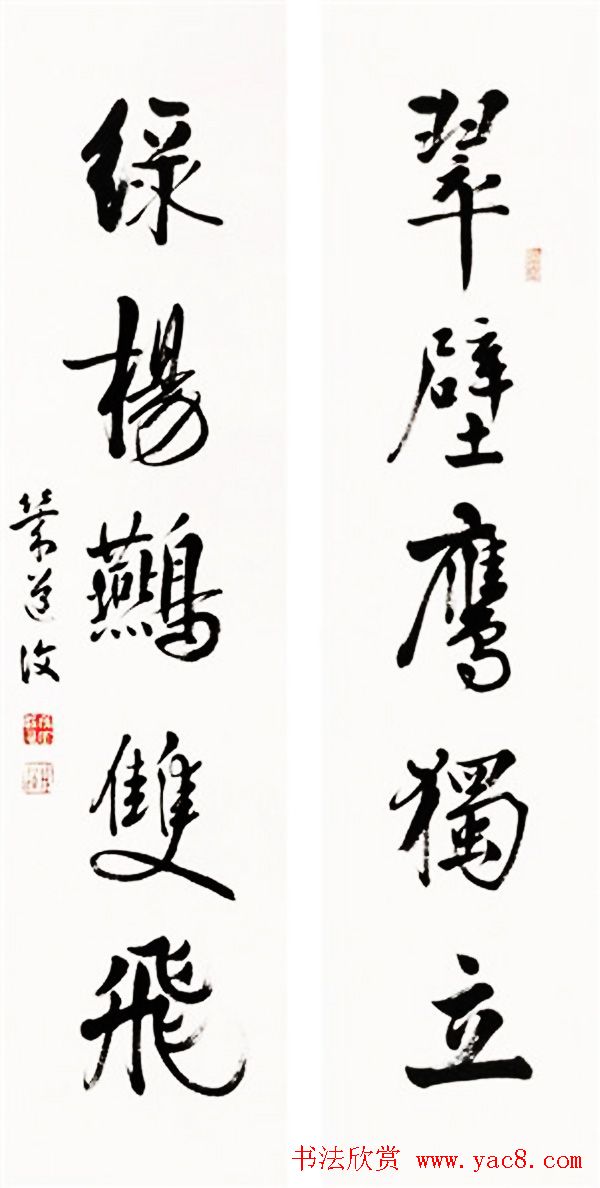 翠壁鷹獨立
綠楊䴏雙飛
书法欣赏 www.yac8.com